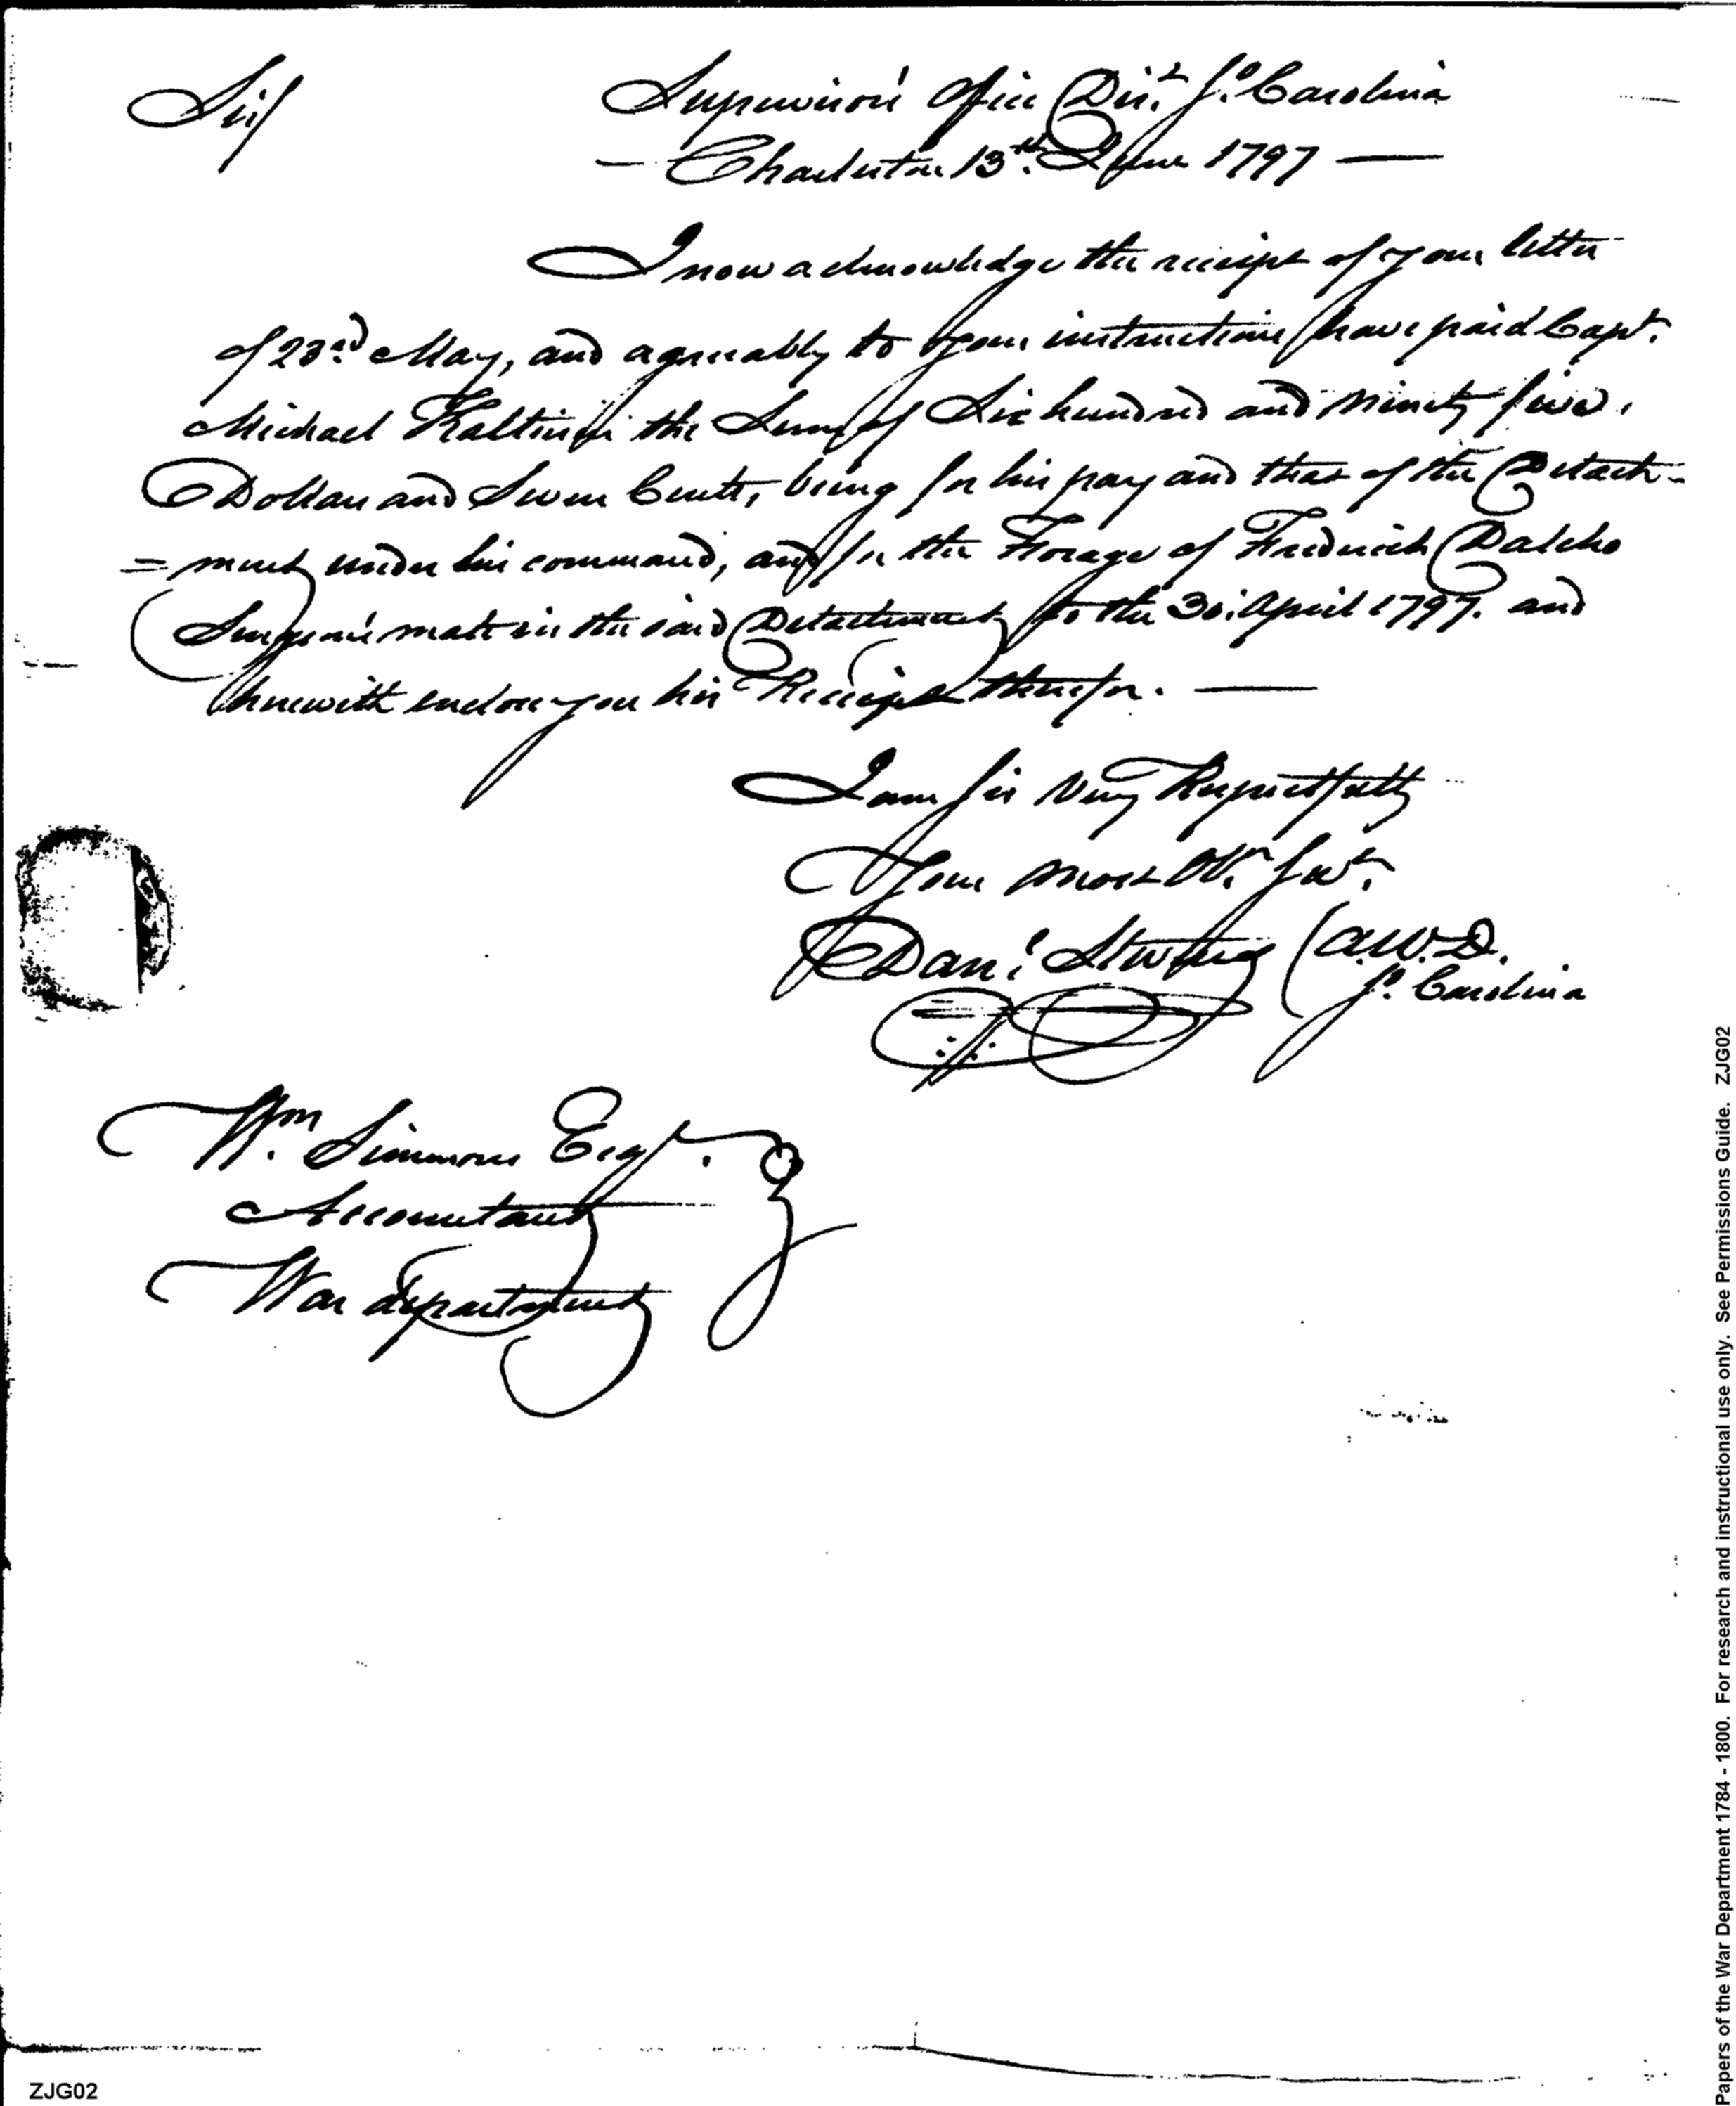 Sir/
Supervisors Office Dist. So. Carolina
— Charleston 13th. June 1797 —
I now acknowledge the receipt of your letter
of 23rd. May, and agreeably to your instructions have paid Capt.
Michael Kalteisen the Sum of Six hundred and ninety five
Dollars and Seven Cents, being for his pay and that of the Detach-
=ment under his command, and for the Forage of Frederick Dalcho
Surgeons mate in the said Detachment, to the 30. April 1797. and
herewith enclose you his Receipt therefor. —
I am Sir Very Respectfully
Your most Ob. Sert.
Danl. Stevens
So. Carolina
Wm. Simmons Esqr.
Accountant
War department
ZJG02
Papers of the War Department 1784 - 1800. For research and instructional use only. See Permissions Guide. ZJG02